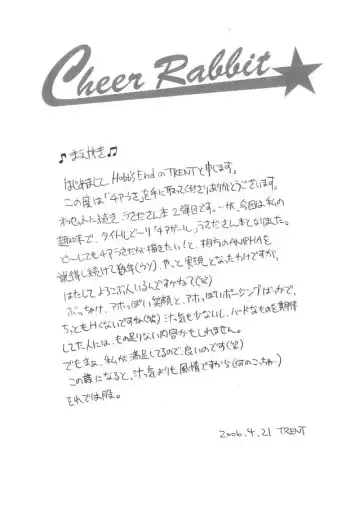 Cheer Rabbit
♪まえがき♫
はじめまして、Hobb's EndのTRENTと申します。
この度は「4アうさ」を手に取ってくださりありがとうございます。
わむに続き、うさださん本2弾目です。…が、今回は私の
趣味で、タイトルど〜り「4アガール」うさださん本となりました。
ど〜しても4アうさださんが描きたい！と、相方のANPHAを
説得し続けて数年(ウソ)、やっと実現となったわけですが、
はたしてよろこぶ人いるんですかね？(笑)
ぶっちゃけ、アホっぽい笑顔と、アホっぽいポージングばっかで、
ちっともHくないですね(笑) 汁気も少ないし、ハードなものを期待
してた人には、もの足りない内容かもしれません。
でもまぁ、私が満足してるので、良いのです(笑)
この歳になると、汁気よりも風情ですから(何のこっちゃ)
それでは股。
2006.4.21 TRENT